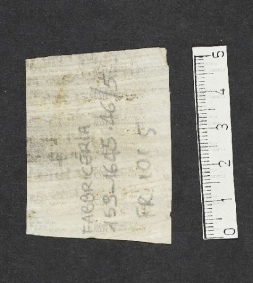 FABBRICERIA
153-1645-46/5
FR. 101 5
0 1 2 3 4 5